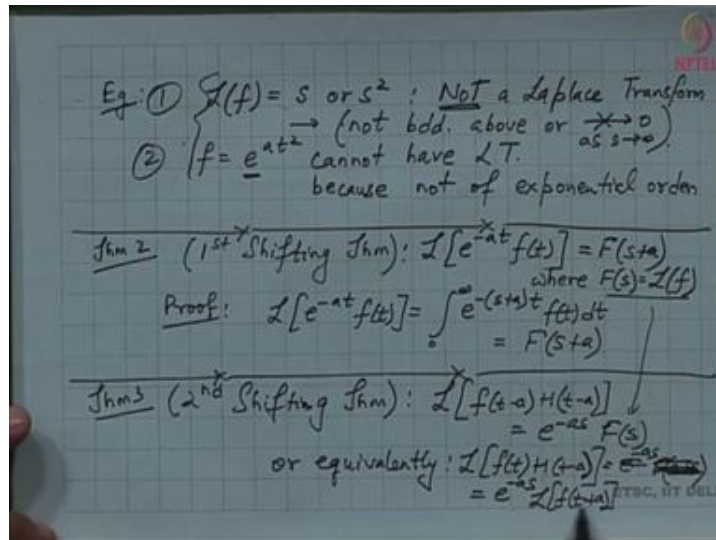 NPTEL
Eg: ① ℒ(f) = s or s² : NOT a Laplace Transform
→ (not bdd. above or ↛ 0 as s→∞).
② f = e^{at²} cannot have LT.
because not of exponential order
Thm 2 (1st Shifting Thm): ℒ[e^{-at} f(t)] = F(s+a)
where F(s)=ℒ(f)
Proof: ℒ[e^{-at} f(t)] = ∫₀^∞ e^{-(s+a)t} f(t) dt
= F(s+a)
Thm 3 (2nd Shifting Thm): ℒ[f(t-a) H(t-a)]
= e^{-as} F(s)
or equivalently: ℒ[f(t) H(t-a)] = e^{-as}
= e^{-as} ℒ[f(t+a)]
ETSC, IIT DEL